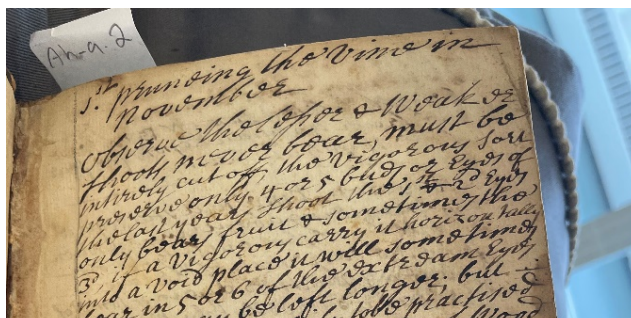 Ah-9.2
1.st pruneing the Vine in
November
Observe the lesser & Weaker
shoots, never bear, must be
intirely cut off, the vigorous sort
preserve only 4 or 5 buds or Eyes of
the last years shoot the 1st & 2d Eyes
only bears fruit & sometimes the
3d, if a vigorous carry it horizontally
into a void place it will sometimes
bear in 5 or 6 of the extream Eyes
be left longer; but
to be practised
Wood